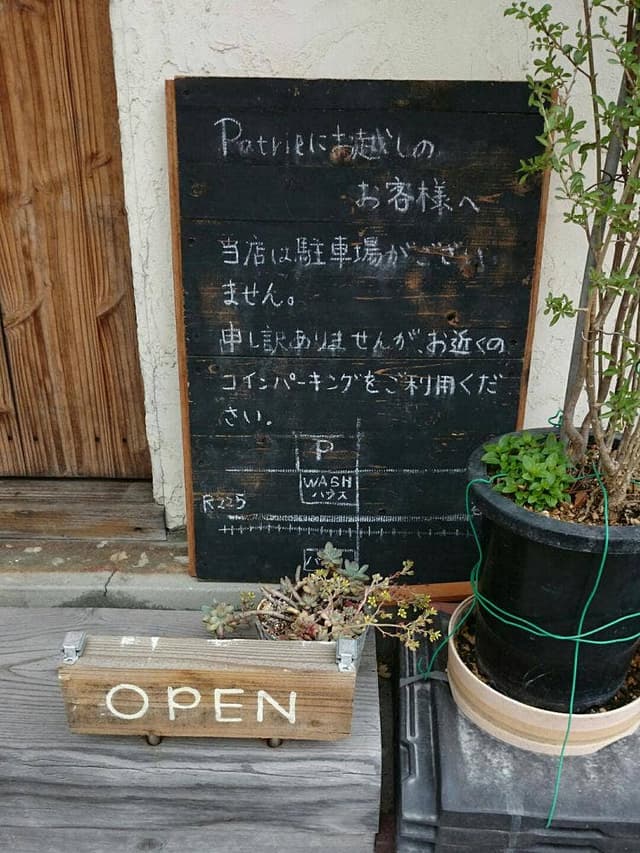 Patrieにお越しの
お客様へ
当店は駐車場がござい
ません。
申し訳ありませんが、お近くの
コインパーキングをご利用くだ
さい。
P
WASH
ハウス
R225
OPEN